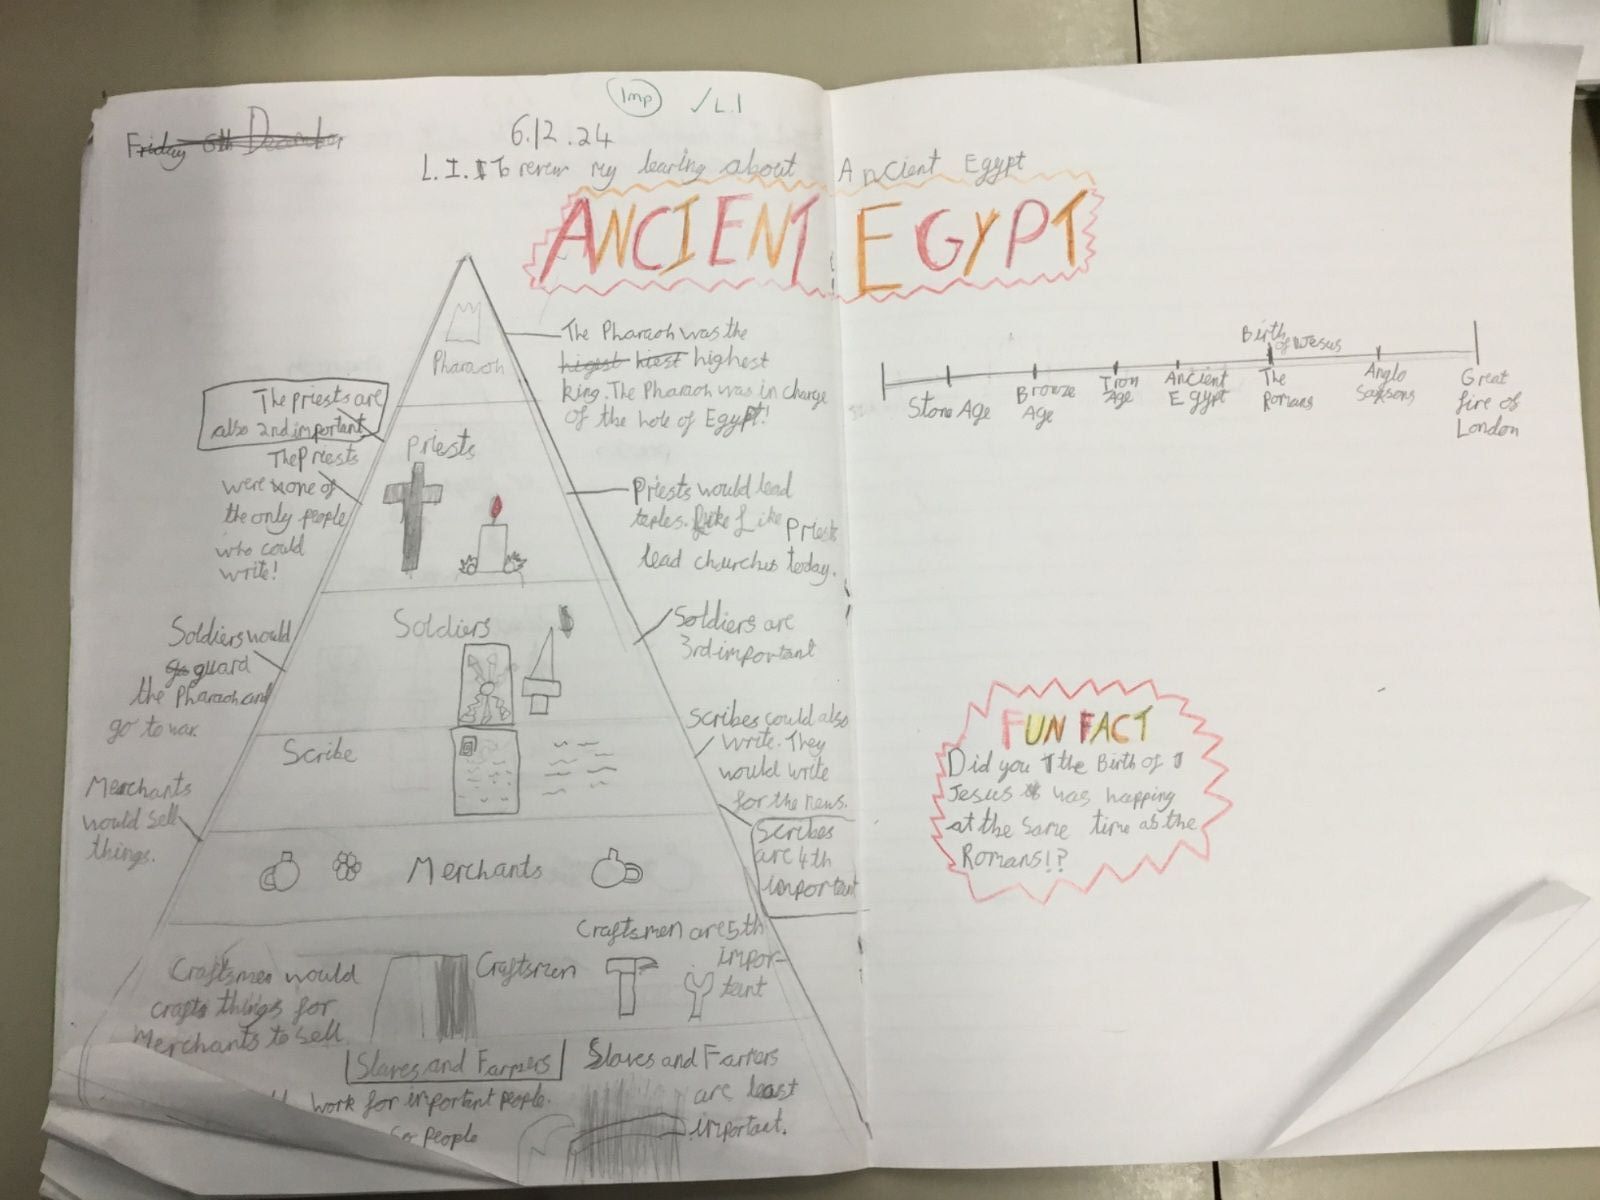 Imp ✓L.I
Friday 6th December
6.12.24
L.I. To revew my learing about Ancient Egypt
ANCIENT EGYPT
Pharaoh
The Pharaoh was the
higest hiest highest
king. The Pharaoh was in charge
of the hole of Egypt!
The priests are
also 2nd important
The Priests
were one of
the only people
who could
write!
Priests
Priests would lead
temples. Like Like Priests
lead churches today.
Soldiers would
go guard
the Pharaoh and
go to war.
Soldiers
Soldiers are
3rd important
Scribe
Scribes could also
write. They
would write
for the news.
Scribes
are 4th
important
Merchants
would sell
things.
Merchants
Craftsmen would
crafts things for
Merchants to sell
Craftsmen
Craftsmen are 5th
impor-
tent
Slaves and Farmers
work for important people.
people
Slaves and Farmers
are least
important.
Stone Age
Bronze
Age
Iron
Age
Ancient
Egypt
Birth
of Jesus
The
Romans
Anglo
Saxsons
Great
fire of
London
FUN FACT
Did you the Birth of
Jesus was happing
at the same time as the
Romans!?